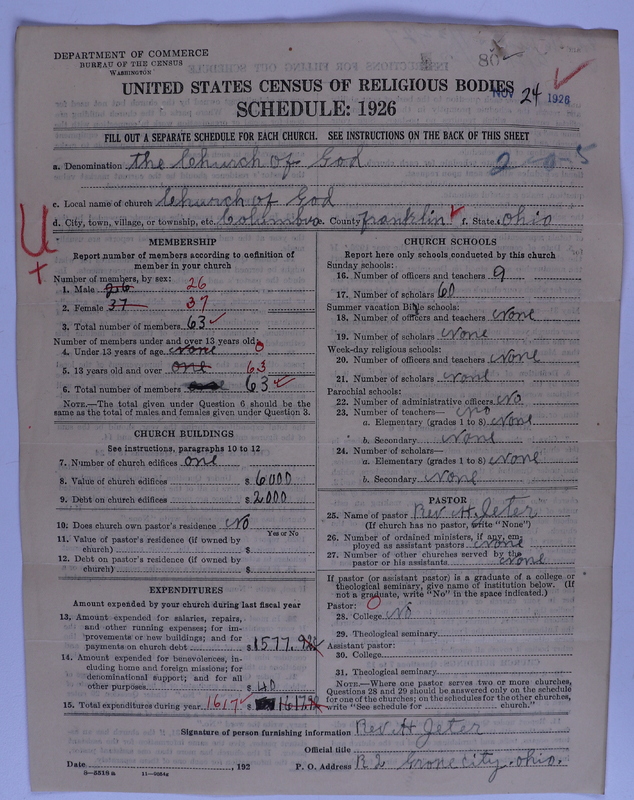 DEPARTMENT OF COMMERCE
BUREAU OF THE CENSUS
WASHINGTON
80
UNITED STATES CENSUS OF RELIGIOUS BODIES
NOV 24 1926
SCHEDULE: 1926
FILL OUT A SEPARATE SCHEDULE FOR EACH CHURCH. SEE INSTRUCTIONS ON THE BACK OF THIS SHEET
a. Denomination the Church of God
c. Local name of church Church of God
d. City, town, village, or township, etc. Columbus e. County franklin f. State ohio
MEMBERSHIP
Report number of members according to definition of
member in your church
Number of members, by sex:
1. Male 26 26
2. Female 37 37
3. Total number of members 63
Number of members under and over 13 years old:
4. Under 13 years of age none 0
5. 13 years old and over one 63
6. Total number of members 63
NOTE.—The total given under Question 6 should be the
same as the total of males and females given under Question 3.
CHURCH BUILDINGS
See instructions, paragraphs 10 to 12
7. Number of church edifices one
8. Value of church edifices $ 6000
9. Debt on church edifices $ 2000
10. Does church own pastor's residence no
Yes or No
11. Value of pastor's residence (if owned by
church) $
12. Debt on pastor's residence (if owned by
church) $
EXPENDITURES
Amount expended by your church during last fiscal year
13. Amount expended for salaries, repairs,
and other running expenses; for im-
provements or new buildings; and for
payments on church debt $ 1577.
14. Amount expended for benevolences, in-
cluding home and foreign missions; for
denominational support; and for all
other purposes $ 40
15. Total expenditures during year 1617 $ 1617
CHURCH SCHOOLS
Report here only schools conducted by this church
Sunday schools:
16. Number of officers and teachers 9
17. Number of scholars 60
Summer vacation Bible schools:
18. Number of officers and teachers none
19. Number of scholars none
Week-day religious schools:
20. Number of officers and teachers none
21. Number of scholars none
Parochial schools:
22. Number of administrative officers no
23. Number of teachers— no
a. Elementary (grades 1 to 8) none
b. Secondary none
24. Number of scholars—
a. Elementary (grades 1 to 8) none
b. Secondary none
PASTOR
25. Name of pastor Rev H. Jeter
(If church has no pastor, write "None")
26. Number of ordained ministers, if any, em-
ployed as assistant pastors none
27. Number of other churches served by the
pastor or his assistants none
If pastor (or assistant pastor) is a graduate of a college or
theological seminary, give name of institution below. (If
not a graduate, write "No" in the space indicated.)
Pastor: 0
28. College no
29. Theological seminary
Assistant pastor:
30. College
31. Theological seminary
NOTE.—Where one pastor serves two or more churches,
Questions 28 and 29 should be answered only on the schedule
for one of the churches; on the schedules for the other churches,
write "See schedule for church."
Signature of person furnishing information Rev H Jeter
Official title
Date , 192 P. O. Address R 2 Grove city. ohio.
8—5518 a 11—9084a